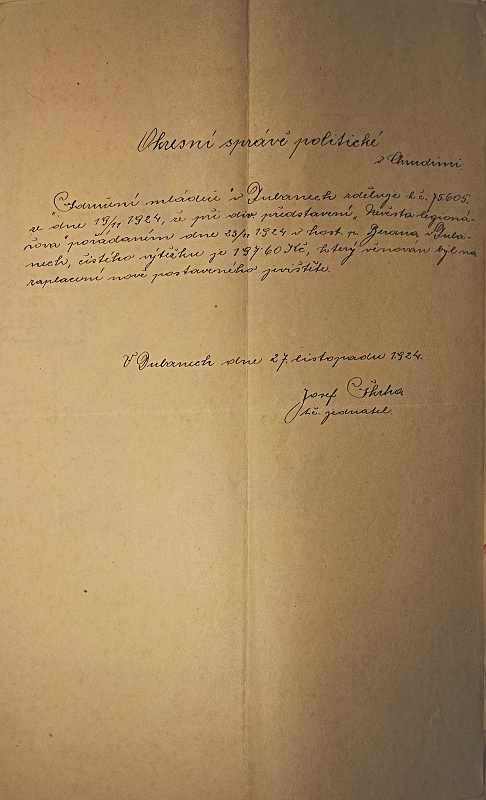 Okresní správě politické
v Chrudimi.
"Sdružení mládeže" v Dubanech sděluje k č. 75605.
ze dne 19/11 1924, že při div. představení "Nevěsta legioná-
řova" pořádaném dne 23/11 1924 v host. p. Berana v Duba-
nech, čistého výtěžku je 197·60 Kč, který věnován byl na
zaplacení nově postaveného jeviště.
V Dubanech dne 27. listopadu 1924.
Josef
t.č. jednatel.